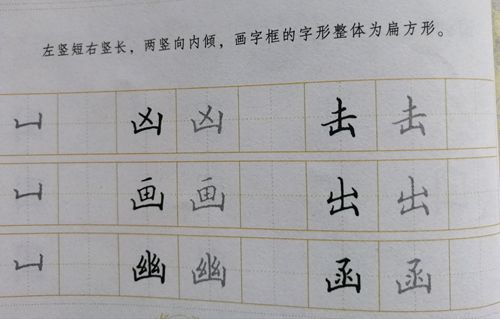 左竖短右竖长，两竖向内倾，画字框的字形整体为扁方形。
凵 凶 凶 击 击
凵 画 画 出 出
凵 幽 幽 函 函